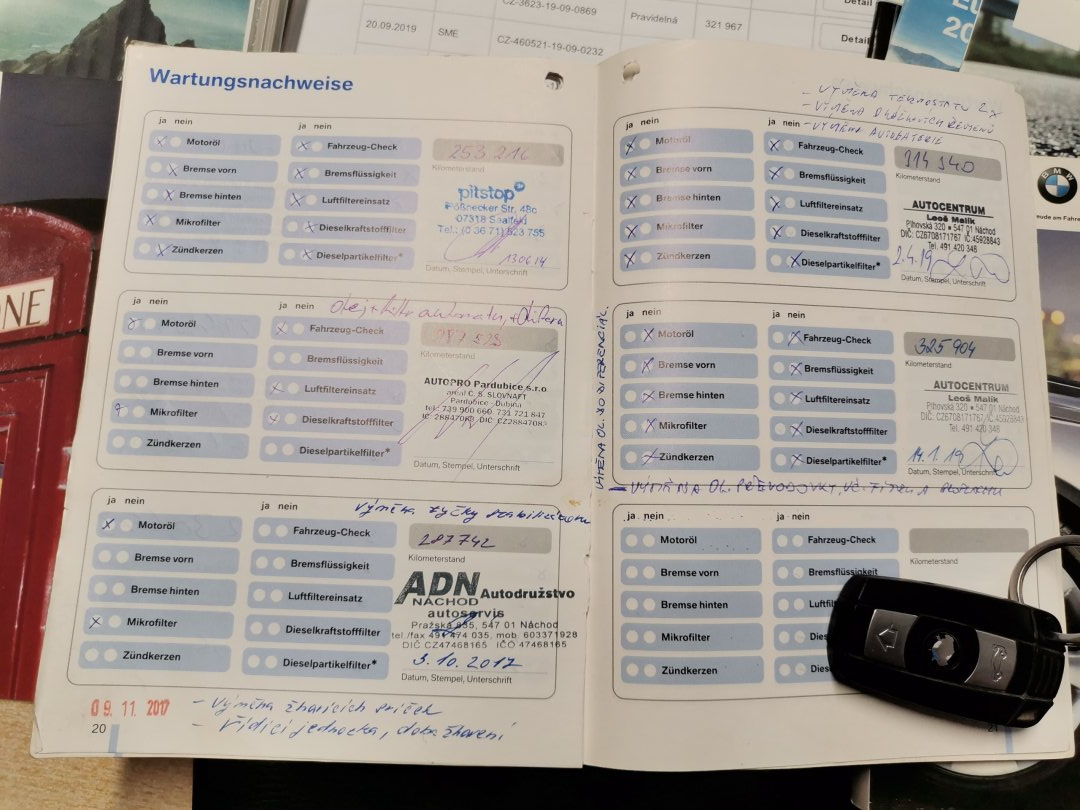 CZ-3623-19-09-0869
Pravidelná
321 967
Detail
20.09.2019
SME
CZ-460521-19-09-0232
Detail
20
ONE
BMW
Wartungsnachweise
ja nein
ja nein
Motoröl
Fahrzeug-Check
Bremse vorn
Bremsflüssigkeit
Bremse hinten
Luftfiltereinsatz
Mikrofilter
Dieselkraftstofffilter
Zündkerzen
Dieselpartikelfilter*
253 216
Kilometerstand
pitstop
Pößnecker Str. 48c
07318 Saalfeld
Tel.: (0 36 71) 523 755
130614
Datum, Stempel, Unterschrift
ja nein
ja nein
Motoröl
Fahrzeug-Check
Bremse vorn
Bremsflüssigkeit
Bremse hinten
Luftfiltereinsatz
Mikrofilter
Dieselkraftstofffilter
Zündkerzen
Dieselpartikelfilter*
Kilometerstand
AUTOPRO Pardubice s.r.o.
areál C. S. SLOVNAFT
Pardubice - Dubina
tel.: 739 900 660, 731 721 847
Datum, Stempel, Unterschrift
ja nein
ja nein
výměna tyčky stabilizátoru
Motoröl
Fahrzeug-Check
Bremse vorn
Bremsflüssigkeit
Bremse hinten
Luftfiltereinsatz
Mikrofilter
Dieselkraftstofffilter
Zündkerzen
Dieselpartikelfilter*
287742
Kilometerstand
ADN Autodružstvo
NÁCHOD
autoservis
Pražská 835, 547 01 Náchod
tel./fax 491 474 035, mob. 603371928
DIČ CZ47468165 IČO 47468165
3.10.2017
Datum, Stempel, Unterschrift
09. 11. 2017
- výměna žhavících svíček
- řídící jednotka, doba žhavení
20
- VÝMĚNA TERMOSTATU 2x
- VÝMĚNA DRÁŽKOVÝCH ŘEMENŮ
- VÝMĚNA AUTOBATERIE
ja nein
ja nein
Motoröl
Fahrzeug-Check
Bremse vorn
Bremsflüssigkeit
Bremse hinten
Luftfiltereinsatz
Mikrofilter
Dieselkraftstofffilter
Zündkerzen
Dieselpartikelfilter*
314 140
Kilometerstand
AUTOCENTRUM
Leoš Malík
Plhovská 320 • 547 01 Náchod
DIČ: CZ6708171767 IČ:45928843
Tel. 491 420 348
2.4.19
Datum, Stempel, Unterschrift
VÝMĚNA OL. DO DIFERENCIÁL.
ja nein
ja nein
Motoröl
Fahrzeug-Check
Bremse vorn
Bremsflüssigkeit
Bremse hinten
Luftfiltereinsatz
Mikrofilter
Dieselkraftstofffilter
Zündkerzen
Dieselpartikelfilter*
325 904
Kilometerstand
AUTOCENTRUM
Leoš Malík
Plhovská 320 • 547 01 Náchod
DIČ: CZ6708171767, IČ:45928843
Tel. 491 420 348
Datum, Stempel, Unterschrift
- VÝMĚNA OL. PŘEVODOVKY, VČ. FILTRU A
ja nein
ja nein
Motoröl
Fahrzeug-Check
Bremse vorn
Bremsflüssigkeit
Bremse hinten
Mikrofilter
Zündkerzen
Kilometerstand